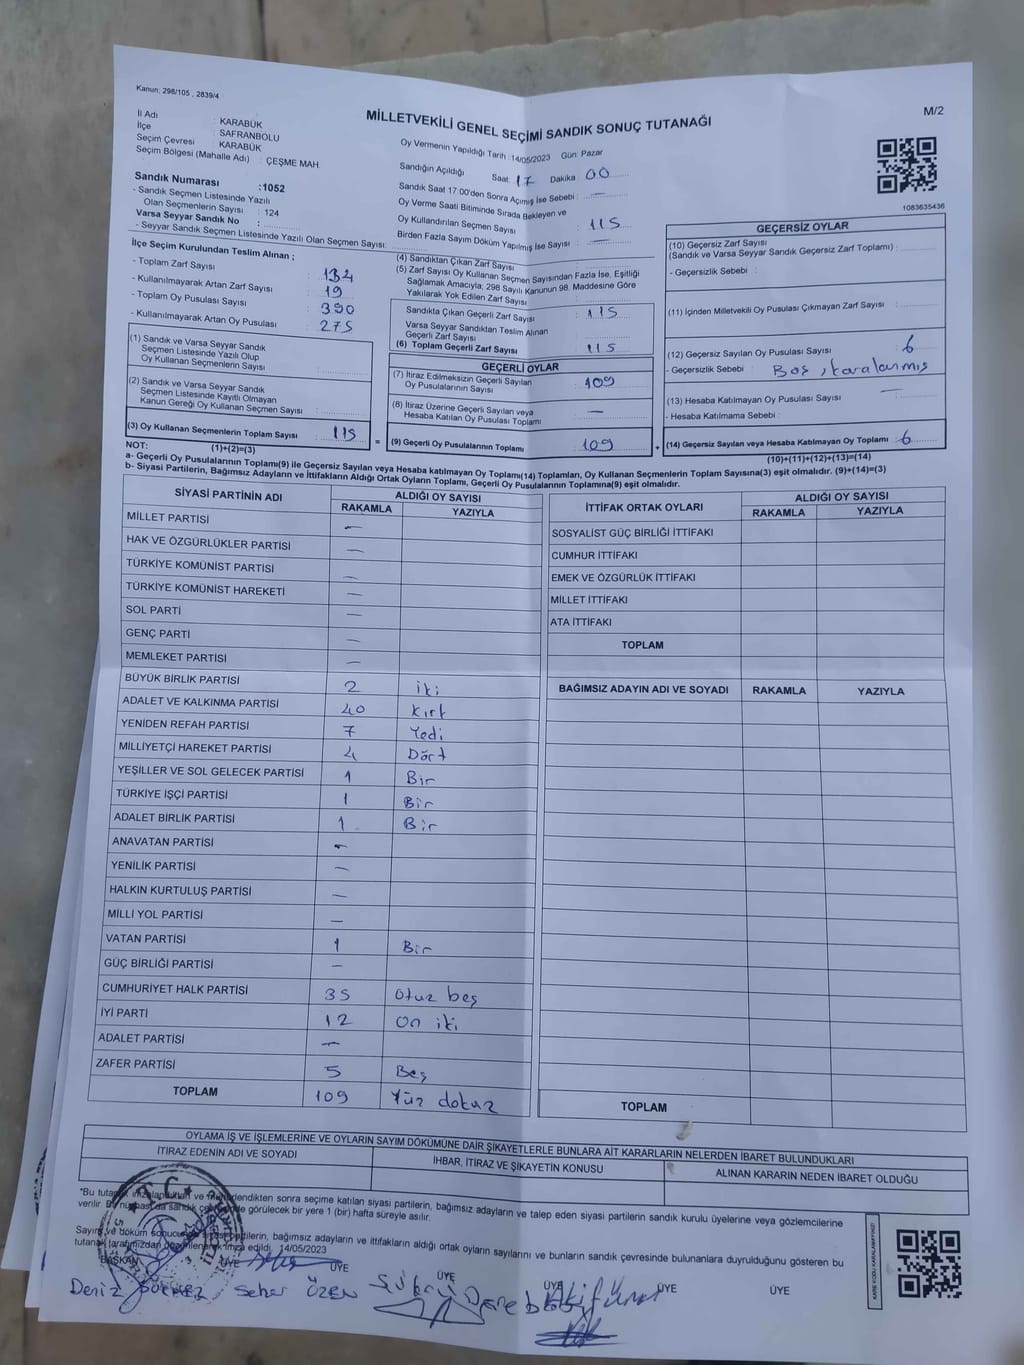 Kanun; 298/105 , 2839/4
M/2
MİLLETVEKİLİ GENEL SEÇİMİ SANDIK SONUÇ TUTANAĞI
İl Adı : KARABÜK
İlçe : SAFRANBOLU
Seçim Çevresi : KARABÜK
Seçim Bölgesi (Mahalle Adı) : ÇEŞME MAH.
Sandık Numarası :1052
- Sandık Seçmen Listesinde Yazılı
Olan Seçmenlerin Sayısı : 124
Varsa Seyyar Sandık No :
- Seyyar Sandık Seçmen Listesinde Yazılı Olan Seçmen Sayısı:
Oy Vermenin Yapıldığı Tarih :14/05/2023 Gün: Pazar
Sandığın Açıldığı Saat 17 Dakika 00
Sandık Saat 17:00'den Sonra Açımış İse Sebebi : —
Oy Verme Saati Bitiminde Sırada Bekleyen ve
Oy Kullandırılan Seçmen Sayısı : 115
Birden Fazla Sayım Döküm Yapılmış İse Sayısı : —
1083635436
İlçe Seçim Kurulundan Teslim Alınan ;
- Toplam Zarf Sayısı : 134
- Kullanılmayarak Artan Zarf Sayısı : 19
- Toplam Oy Pusulası Sayısı : 390
- Kullanılmayarak Artan Oy Pusulası : 275
(1) Sandık ve Varsa Seyyar Sandık
Seçmen Listesinde Yazılı Olup
Oy Kullanan Seçmenlerin Sayısı :
(2) Sandık ve Varsa Seyyar Sandık
Seçmen Listesinde Kayıtlı Olmayan
Kanun Gereği Oy Kullanan Seçmen Sayısı :
(3) Oy Kullanan Seçmenlerin Toplam Sayısı : 115
(1)+(2)=(3)
(4) Sandıktan Çıkan Zarf Sayısı :
(5) Zarf Sayısı Oy Kullanan Seçmen Sayısından Fazla İse, Eşitliği
Sağlamak Amacıyla; 298 Sayılı Kanunun 98. Maddesine Göre
Yakılarak Yok Edilen Zarf Sayısı :
Sandıkta Çıkan Geçerli Zarf Sayısı : 115
Varsa Seyyar Sandıktan Teslim Alınan
Geçerli Zarf Sayısı :
(6) Toplam Geçerli Zarf Sayısı : 115
GEÇERLİ OYLAR
(7) İtiraz Edilmeksizin Geçerli Sayılan
Oy Pusulalarının Sayısı : 109
(8) İtiraz Üzerine Geçerli Sayılan veya
Hesaba Katılan Oy Pusulası Toplamı : —
= (9) Geçerli Oy Pusulalarının Toplamı : 109 +
GEÇERSİZ OYLAR
(10) Geçersiz Zarf Sayısı
(Sandık ve Varsa Seyyar Sandık Geçersiz Zarf Toplamı) :
- Geçersizlik Sebebi :
(11) İçinden Milletvekili Oy Pusulası Çıkmayan Zarf Sayısı :
(12) Geçersiz Sayılan Oy Pusulası Sayısı : 6
- Geçersizlik Sebebi : Boş, karalanmış
(13) Hesaba Katılmayan Oy Pusulası Sayısı : —
- Hesaba Katılmama Sebebi :
(14) Geçersiz Sayılan veya Hesaba Katılmayan Oy Toplamı : 6
(10)+(11)+(12)+(13)=(14)
NOT:
a- Geçerli Oy Pusulalarının Toplamı(9) ile Geçersiz Sayılan veya Hesaba katılmayan Oy Toplamı(14) Toplamları, Oy Kullanan Seçmenlerin Toplam Sayısına(3) eşit olmalıdır. (9)+(14)=(3)
b- Siyasi Partilerin, Bağımsız Adayların ve İttifakların Aldığı Oyların Toplamı, Geçerli Oy Pusulalarının Toplamına(9) eşit olmalıdır.
SİYASİ PARTİNİN ADI ALDIĞI OY SAYISI
RAKAMLA YAZIYLA
MİLLET PARTİSİ —
HAK VE ÖZGÜRLÜKLER PARTİSİ —
TÜRKİYE KOMÜNİST PARTİSİ —
TÜRKİYE KOMÜNİST HAREKETİ —
SOL PARTİ —
GENÇ PARTİ —
MEMLEKET PARTİSİ —
BÜYÜK BİRLİK PARTİSİ 2 iki
ADALET VE KALKINMA PARTİSİ 40 kırk
YENİDEN REFAH PARTİSİ 7 Yedi
MİLLİYETÇİ HAREKET PARTİSİ 4 Dört
YEŞİLLER VE SOL GELECEK PARTİSİ 1 Bir
TÜRKİYE İŞÇİ PARTİSİ 1 Bir
ADALET BİRLİK PARTİSİ 1 Bir
ANAVATAN PARTİSİ —
YENİLİK PARTİSİ —
HALKIN KURTULUŞ PARTİSİ —
MİLLİ YOL PARTİSİ —
VATAN PARTİSİ 1 Bir
GÜÇ BİRLİĞİ PARTİSİ —
CUMHURİYET HALK PARTİSİ 35 otuz beş
İYİ PARTİ 12 on iki
ADALET PARTİSİ —
ZAFER PARTİSİ 5 Beş
TOPLAM 109 Yüz dokuz
İTTİFAK ORTAK OYLARI ALDIĞI OY SAYISI
RAKAMLA YAZIYLA
SOSYALİST GÜÇ BİRLİĞİ İTTİFAKI
CUMHUR İTTİFAKI
EMEK VE ÖZGÜRLÜK İTTİFAKI
MİLLET İTTİFAKI
ATA İTTİFAKI
TOPLAM
BAĞIMSIZ ADAYIN ADI VE SOYADI RAKAMLA YAZIYLA
TOPLAM
OYLAMA İŞ VE İŞLEMLERİNE VE OYLARIN SAYIM DÖKÜMÜNE DAİR ŞİKAYETLERLE BUNLARA AİT KARARLARIN NELERDEN İBARET BULUNDUKLARI
İTİRAZ EDENİN ADI VE SOYADI İHBAR, İTİRAZ VE ŞİKAYETİN KONUSU ALINAN KARARIN NEDEN İBARET OLDUĞU
*Bu ve sonra seçime katılan siyasi partilerin, bağımsız adayların ve talep eden siyasi partilerin sandık kurulu üyelerine veya gözlemcilerine
verilir. görülecek bir yere 1 (bir) hafta süreyle asılır.
Sayım ve döküm sonucunda bağımsız adayların ve ittifakların aldığı ortak oyların sayılarını ve bunların sandık çevresinde bulunanlara duyrulduğunu gösteren bu
imza edildi. 14/05/2023
BAŞKAN ÜYE ÜYE ÜYE ÜYE ÜYE ÜYE
Deniz Seher ÖZEN
T.C.
KARE KODU KARALAMAYINIZ!